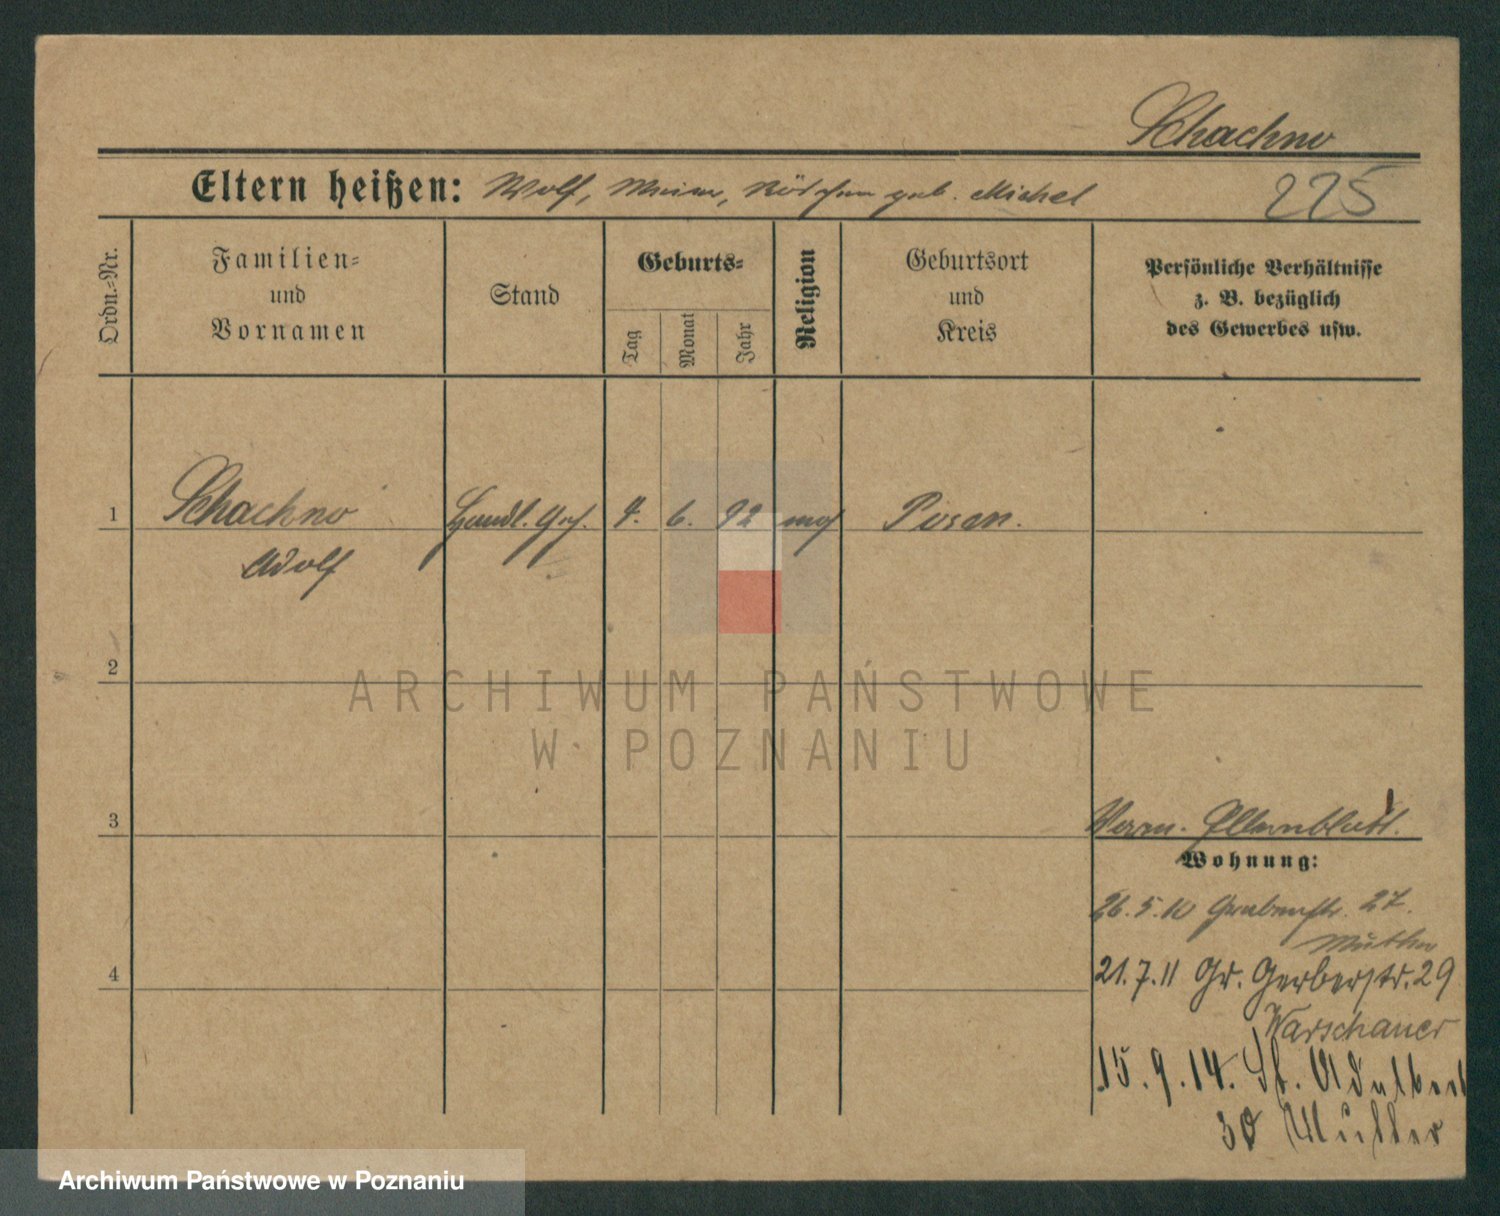 Schachno
Eltern heißen: Wolf, Rös'chen geb. Michel 225
Ordn.-Nr.
Familien-
und
Vornamen
Stand
Geburts-
Tag
Monat
Jahr
Religion
Geburtsort
und
Kreis
Persönliche Verhältnisse
z. B. bezüglich
des Gewerbes usw.
1 Schachno Handl. 6. 92 mos Posen.
Adolf
2
ARCHIWUM PAŃSTWOWE
W POZNANIU
3 Elternblatt.
Wohnung:
26.5.10 Grabenstr. 27.
Mutter
4 21.7.11 Gr. Gerberstr. 29
Warschauer
15.9.14. St. Adalbert
30 Mutter
Archiwum Państwowe w Poznaniu